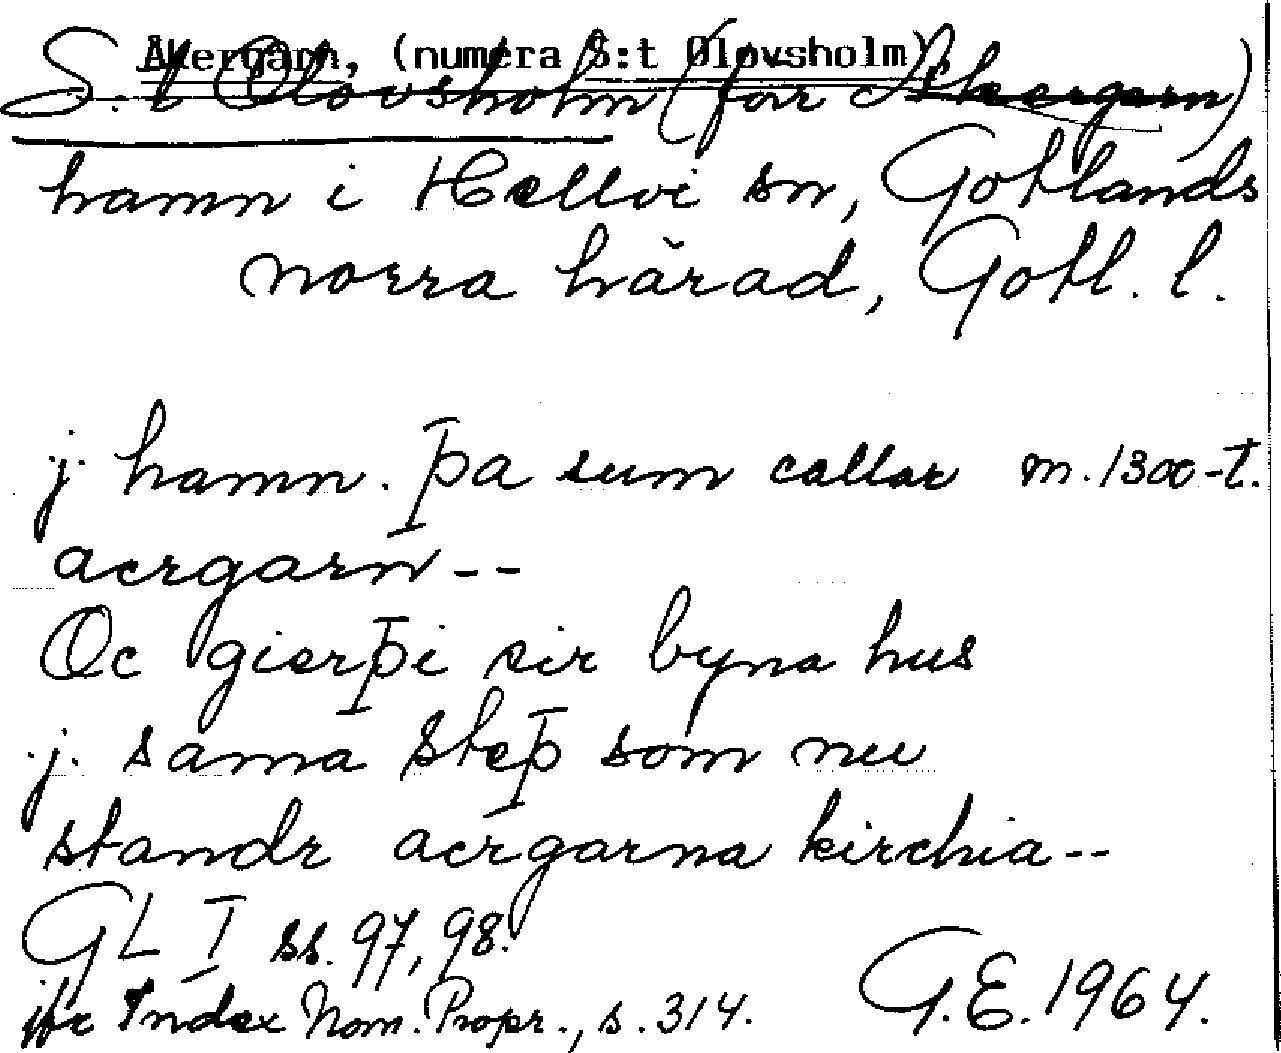 Åkergarn, (numera S:t Olovsholm)
S:t Olovsholm (förr Åkergarn)
hamn i Hellvi sn, Gotlands
norra härad, Gotl. l.
j hamn. þa sum callar m. 1300-t.
acrgarn--
Oc gierþi sir byna hus
j. sama steþ som nu
standr acrgarna kirchia--
GL I ss. 97, 98.
jfr Index Nom. Propr., s. 314. G.E. 1964.